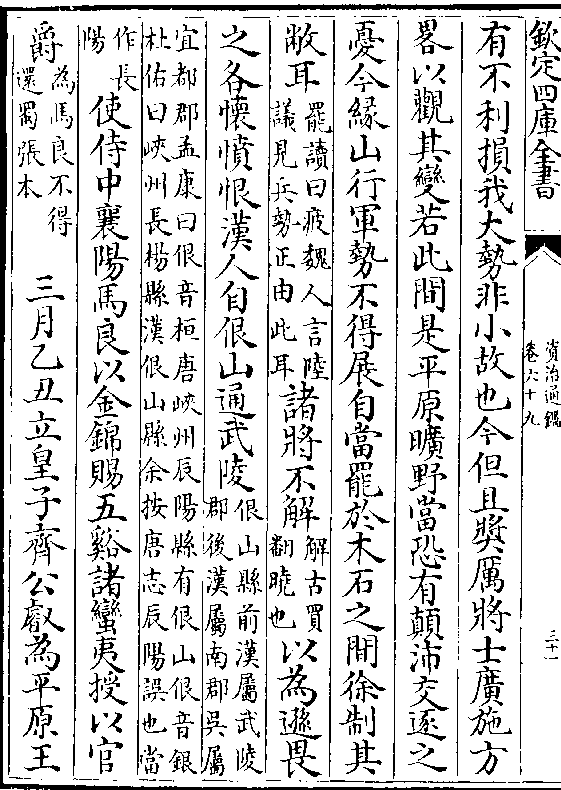 欽定四庫全書
資治通鑑
卷六十九
三十一
有不利損我大勢非小故也今但且奬厲將士廣施方
畧以觀其變若此間是平原曠野當恐有顛沛交逐之
憂今緣山行軍勢不得展自當罷於木石之間徐制其
敝耳罷讀曰疲魏人言陸議見兵勢正由此耳諸將不解解古買翻曉也以為遜畏
之各懷憤恨漢人自佷山通武陵佷山縣前漢屬武陵郡後漢屬南郡吳屬
宜都郡孟康曰佷音桓唐峽州辰陽縣有佷山佷音銀
杜佑曰峽州長楊縣漢佷山縣余按唐志辰陽誤也當
作長陽使侍中襄陽馬良以金錦賜五谿諸蠻夷授以官
爵為馬良不得還蜀張本 三月乙丑立皇子齊公叡為平原王